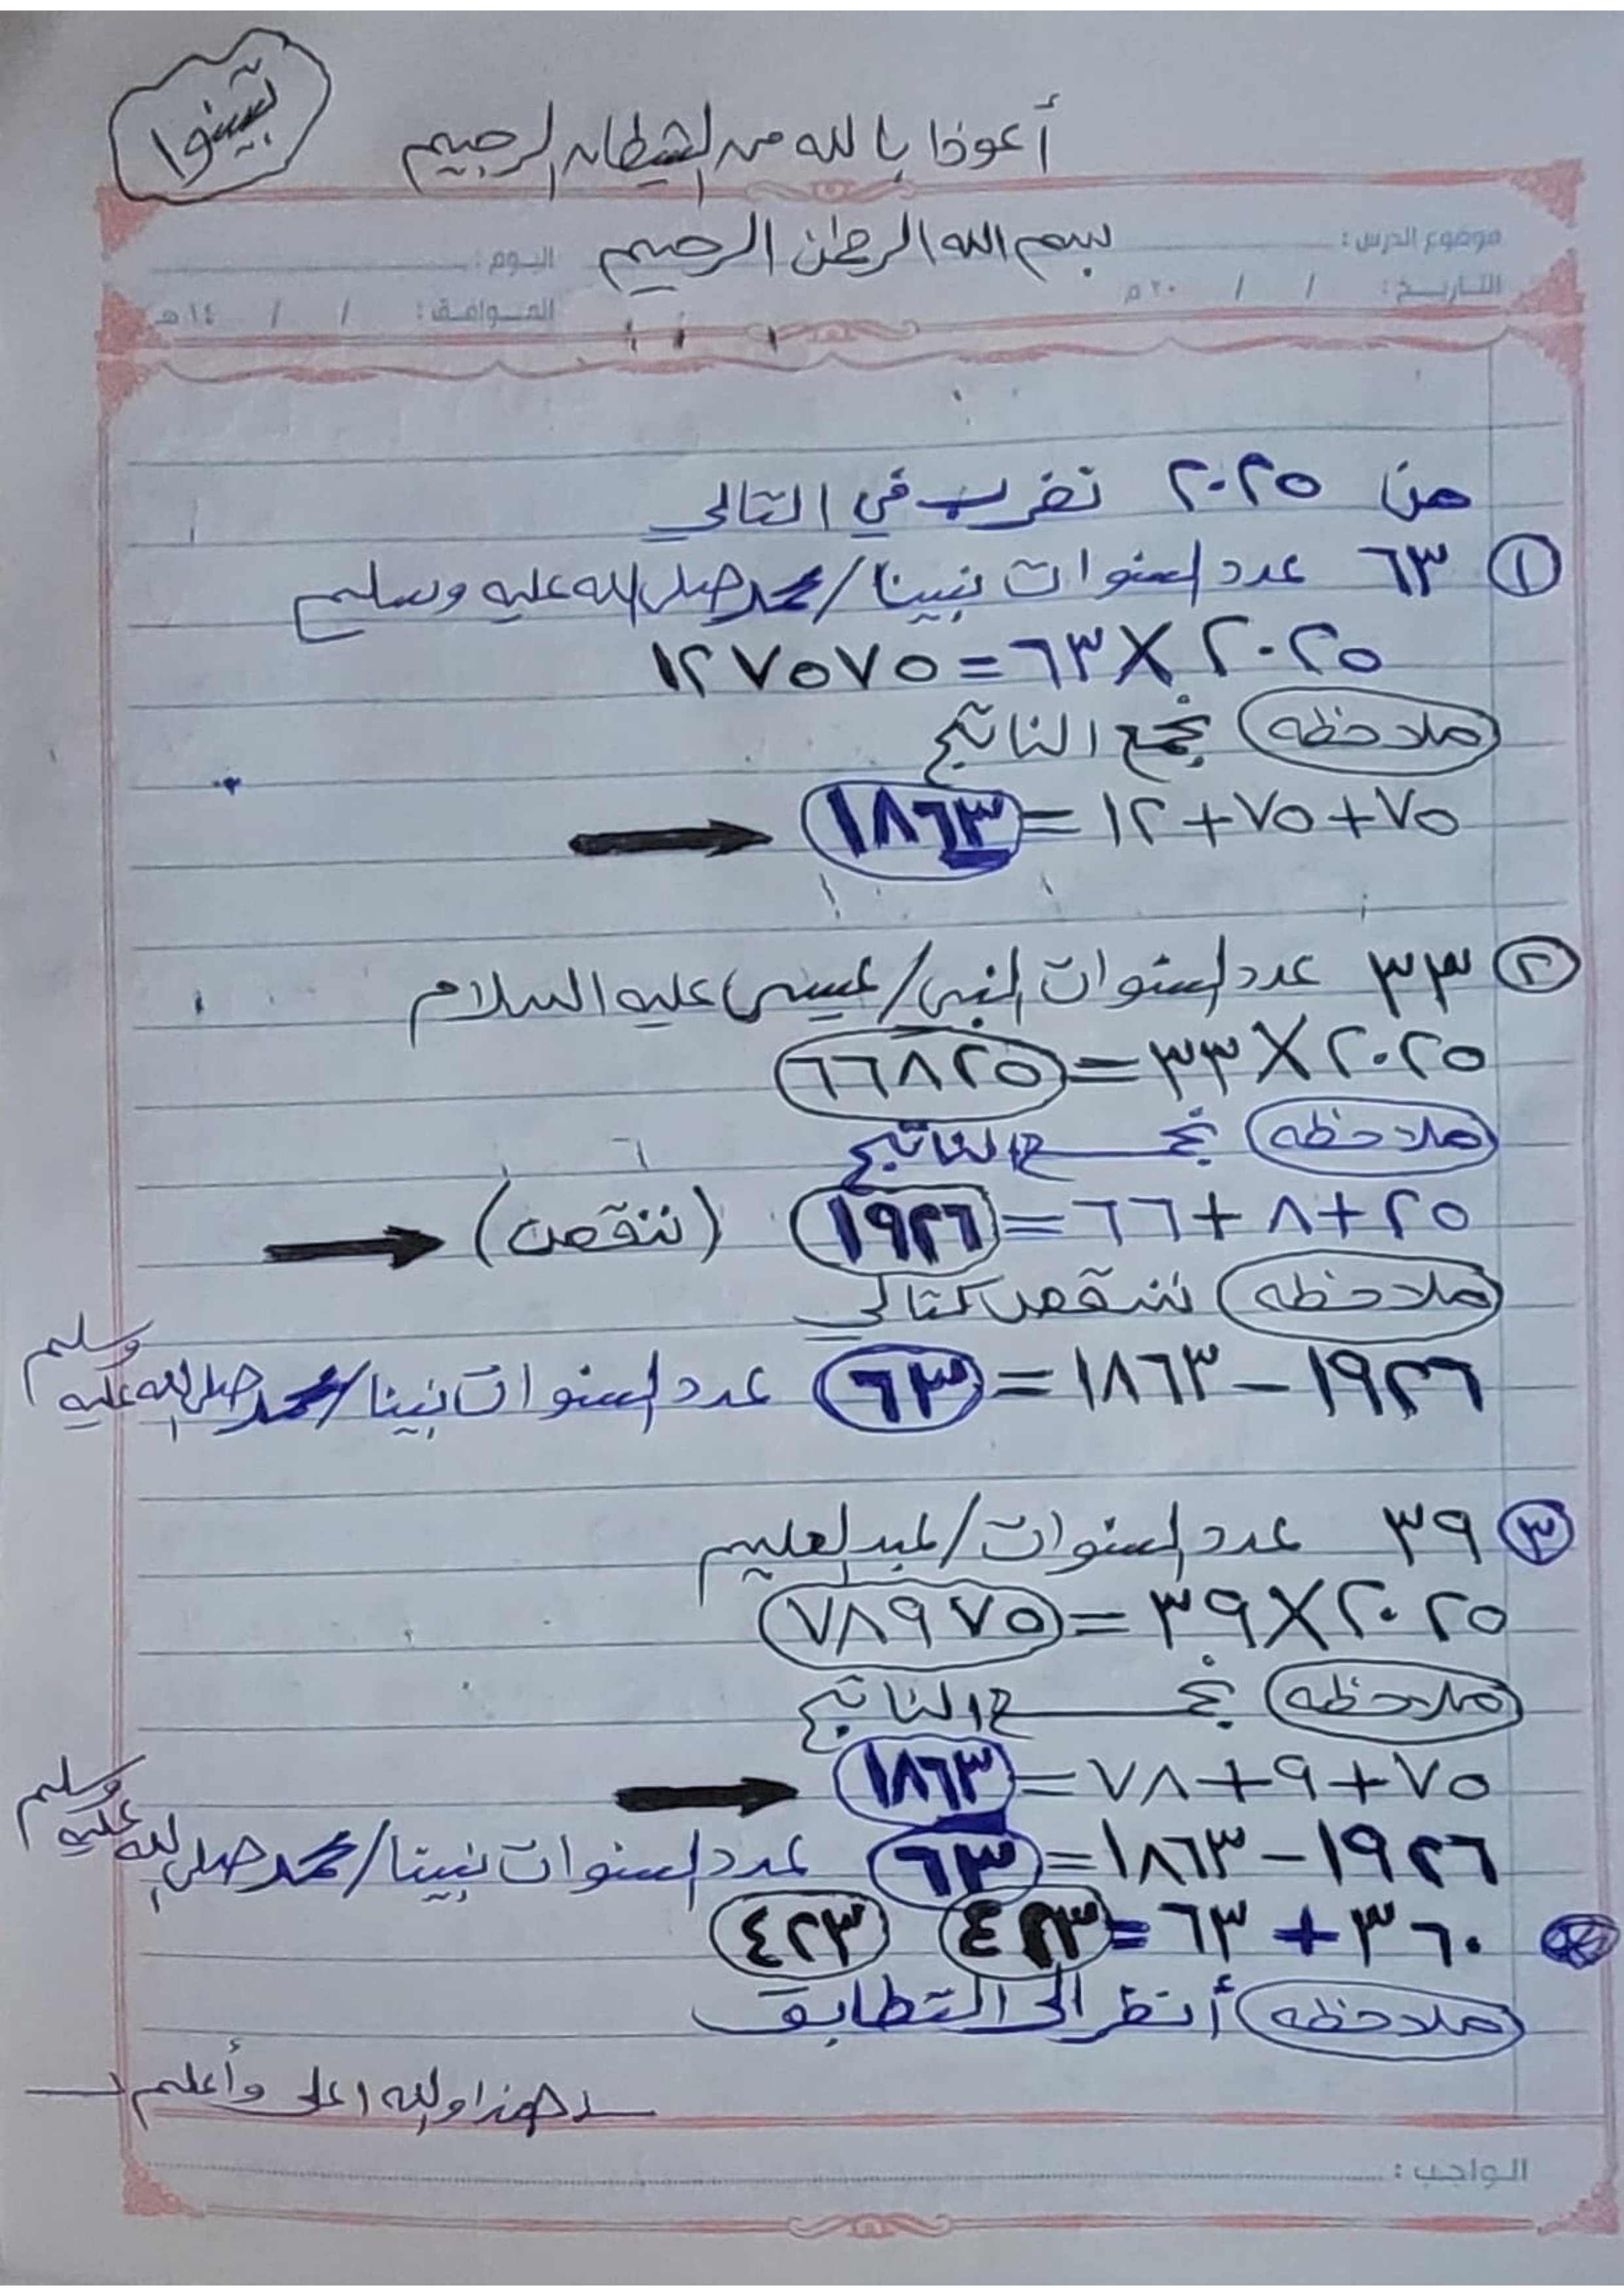 تبينوا
أعوذا بالله من الشيطان الرجيم
بسم الله الرحمن الرحيم
موضوع الدرس : اليوم :
التاريخ : / / ٢٠ م الموافق : / / ١٤ هـ
من ٢٠٢٥ نضرب في التالي
١ ٦٣ عدد السنوات نبينا / محمد صلى الله عليه وسليم
٢٠٢٥ X ٦٣ = ١٢٧٥٧٥
ملاحظه نجمع الناتج
٧٥ + ٧٥ + ١٢ = ١٨٦٣
٢ ٣٣ عدد السنوات النبي / عيسى عليه السلام
٢٠٢٥ X ٣٣ = ٦٦٨٢٥
ملاحظه نجمع الناتج
٢٥ + ٨ + ٦٦ = ١٩٢٦ (ننقص)
ملاحظه ننقص كتالي
١٩٢٦ - ١٨٦٣ = ٦٣ عدد السنوات نبينا / محمد صلى الله عليه وسليم
٣ ٣٩ عدد السنوات / عبد العليم
٢٠٢٥ X ٣٩ = ٧٨٩٧٥
ملاحظه نجمع الناتج
٧٥ + ٩ + ٧٨ = ١٨٦٣
١٩٢٦ - ١٨٦٣ = ٦٣ عدد السنوات نبينا / محمد صلى الله عليه وسليم
٣٦٠ + ٦٣ = ٤٢٣ ٤٢٣
ملاحظه أنظر الى التطابق
هذا والله اعلى وأعلم
الواجب :